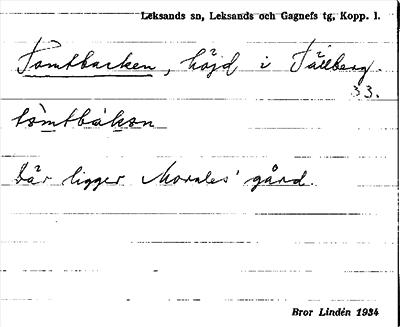 Leksands sn, Leksands och Gagnefs tg, Kopp. l.
Tomtbacken, höjd i Tällberg.
33.
tòmtbàkən
Där ligger Morales' gård.
Bror Lindén 1934